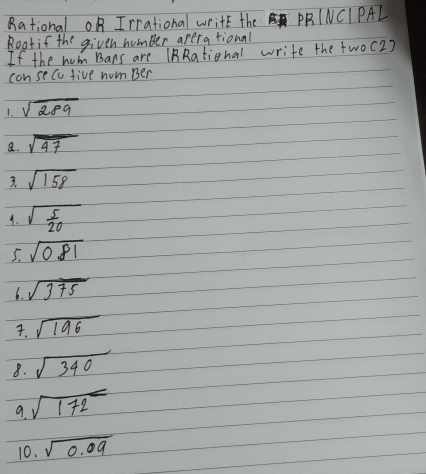 Rational OR Irrational write the PRINCIPAL
Root if the given number are ra tional
If the num Bars are IRRational write the two (2)
con se cu tive num Ber
1. √289
2. √47
3. √158
4. √5/20
5. √0.81
6. √375
7. √196
8. √340
9. √172
10. √0.09